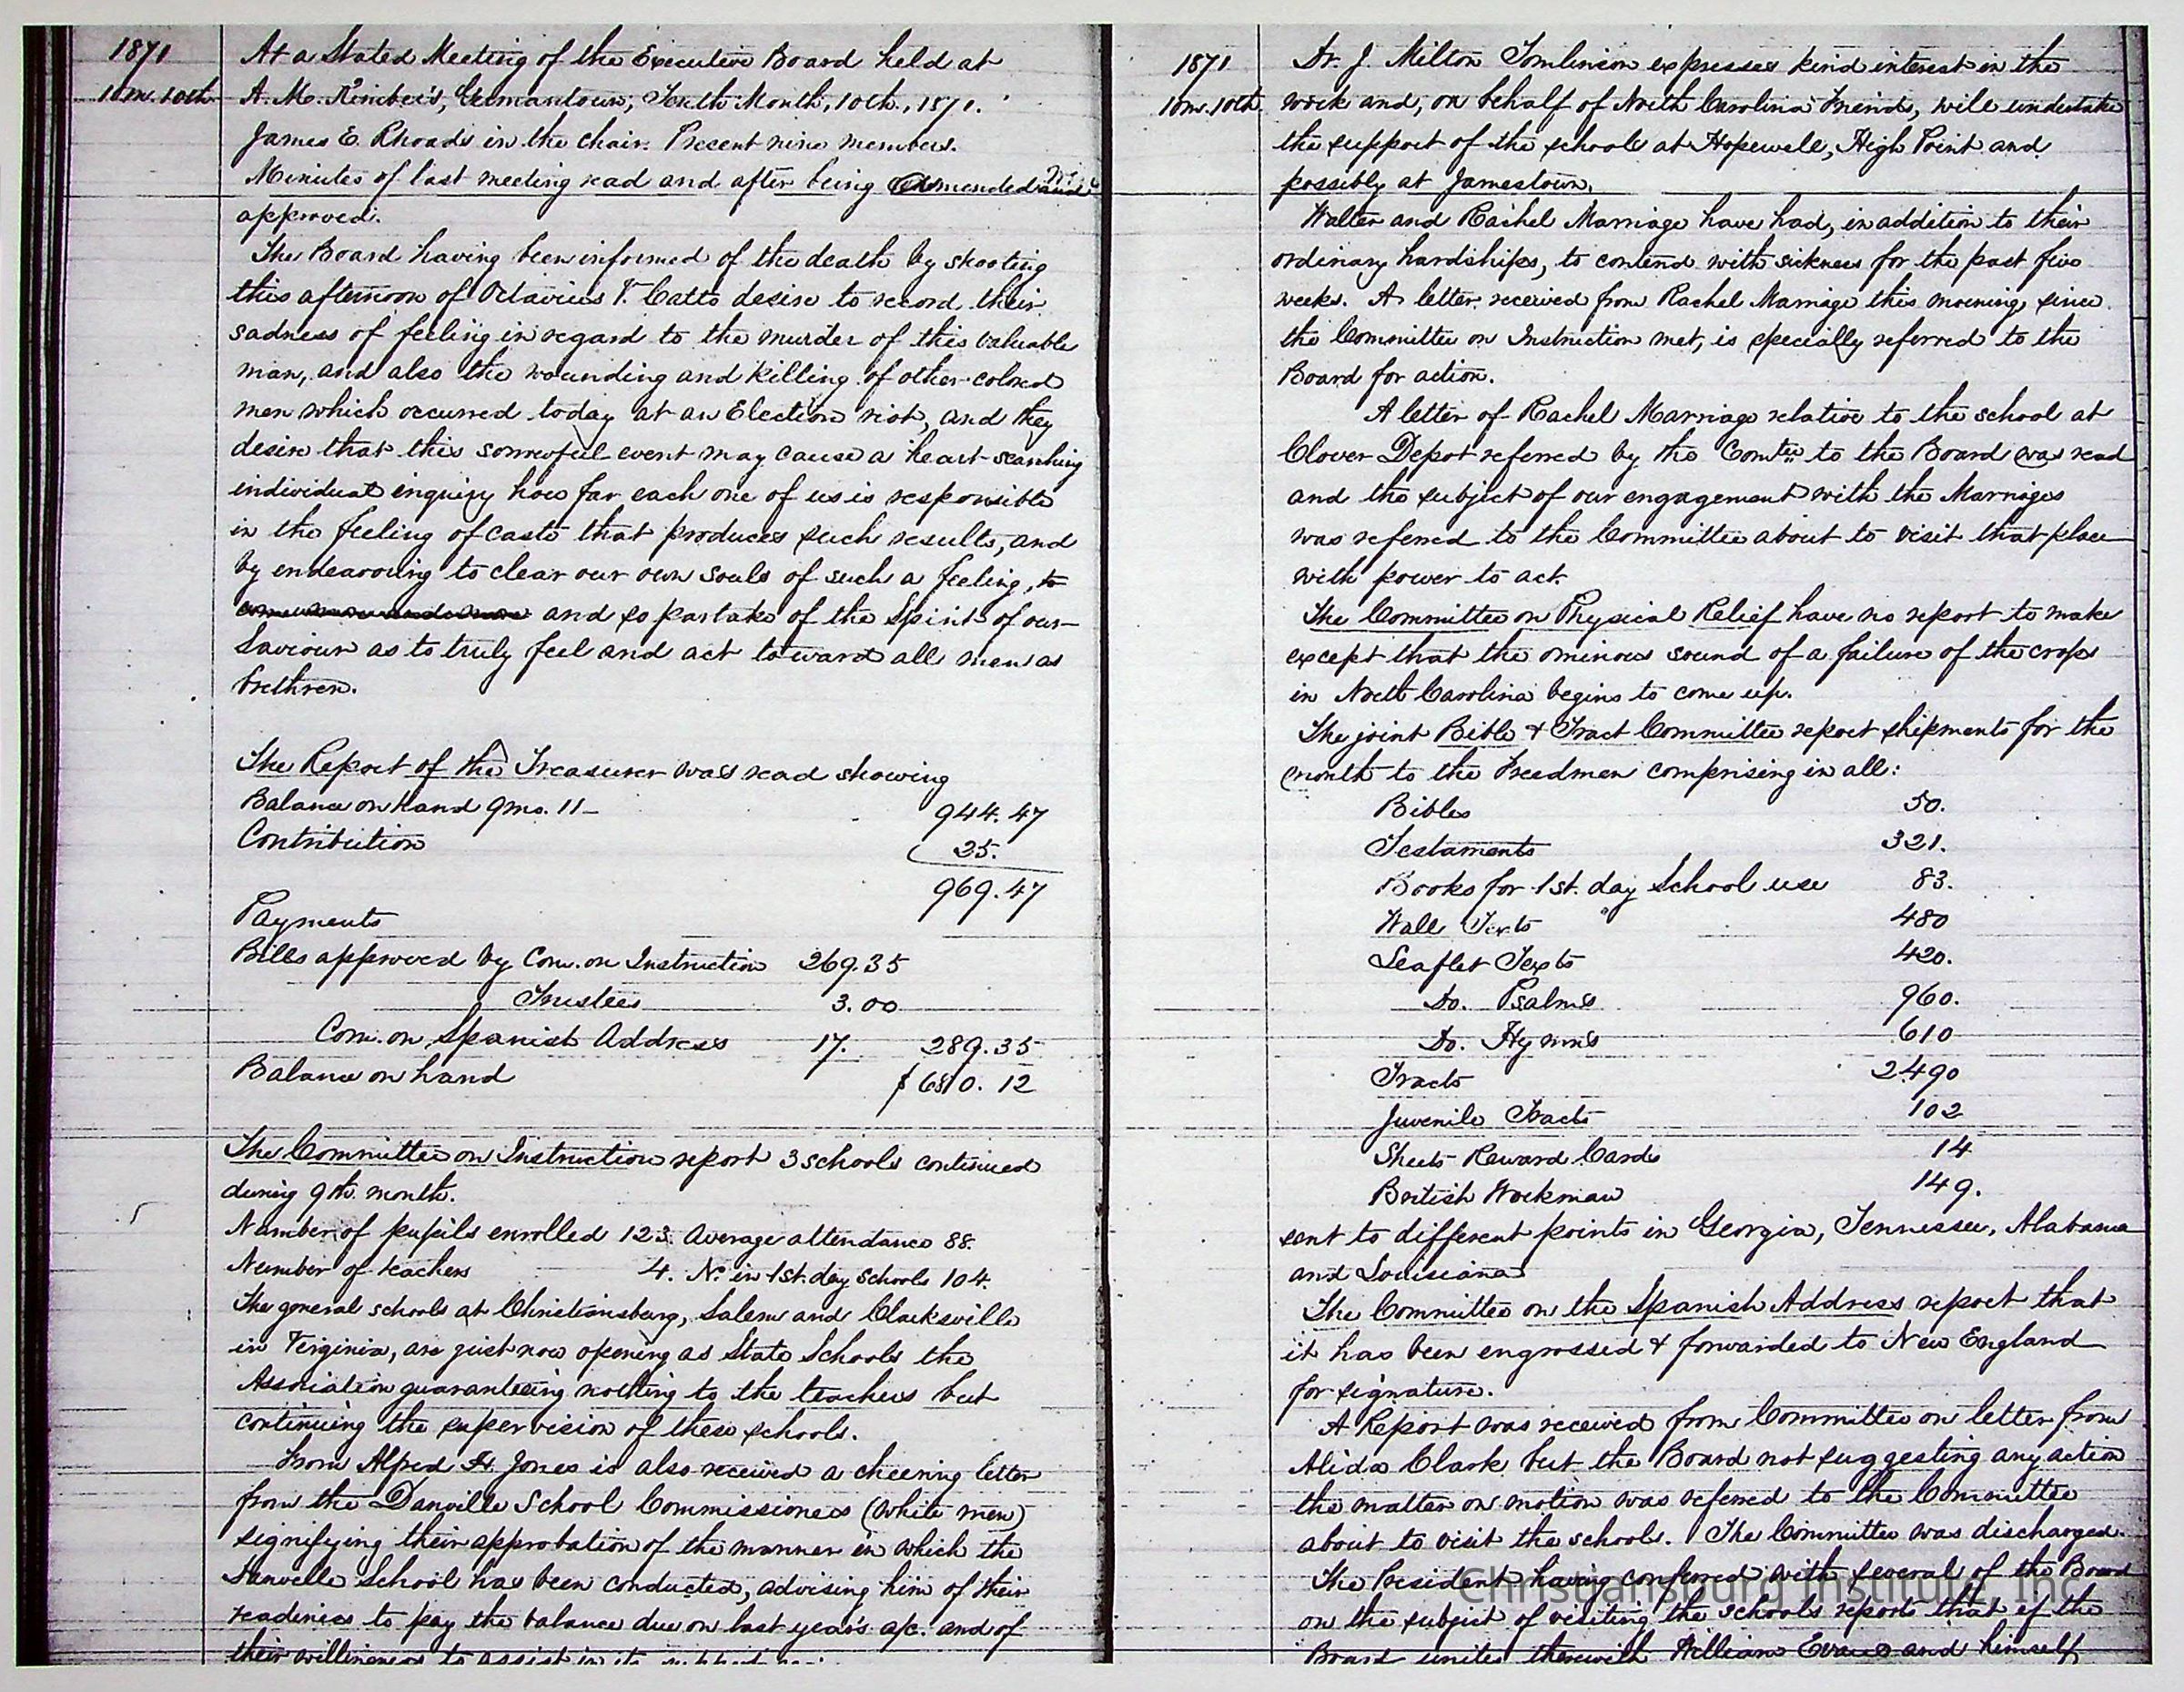 1871
10 mo. 10th
At a Stated Meeting of the Executive Board held at
A. M. Kimber's, Germantown, Tenth Month, 10th, 1871.
James E. Rhoads in the chair. Present nine members.
Minutes of last meeting read and after being amended
approved.
The Board having been informed of the death by shooting
this afternoon of Octavius V. Catto desire to record their
sadness of feeling in regard to the murder of this valuable
man, and also the wounding and killing of other colored
men which occurred today at an Election riot, and they
desire that this sorrowful event may cause a heart-searching
individual enquiry how far each one of us is responsible
in the feeling of caste that produces such results, and
by endeavoring to clear our own souls of such a feeling, to
and so partake of the Spirit of our
Saviour as to truly feel and act toward all men as
brethren.
The Report of the Treasurer was read showing
Balance on hand 9 mo. 11 - 944.47
Contribution 25.
969.47
Payments
Bills approved by Com. on Instruction 269.35
Trustees 3.00
Com. on Spanish Address 17. 289.35
Balance on hand $680.12
The Committee on Instruction report 3 schools continued
during 9th month.
Number of pupils enrolled 123. Average attendance 88.
Number of teachers 4. No. in 1st. day Schools 104.
The general schools at Christiansburg, Salem and Clarksville
in Virginia, are just now opening as State Schools the
Association guaranteeing nothing to the teachers but
continuing the supervision of these schools.
From Alfred H. Jones is also received a cheering letter
from the Danville School Commissioners (white men)
signifying their approbation of the manner in which the
Danville School has been conducted, advising him of their
readiness to pay the balance due on last year's a/c. and of
their willingness to assist in its
1871
10 mo. 10th
Dr. J. Milton Tomlinson expresses kind interest in the
work and, on behalf of North Carolina Friends, will undertake
the support of the schools at Hopewell, High Point and
possibly at Jamestown.
Walter and Rachel Marriage have had, in addition to their
ordinary hardships, to contend with sickness for the past five
weeks. A letter received from Rachel Marriage this morning, since
the Committee on Instruction met, is specially referred to the
Board for action.
A letter of Rachel Marriage relative to the school at
Clover Depot referred by the Comtee to the Board was read
and the subject of our engagement with the Marriages
was referred to the Committee about to visit that place
with power to act.
The Committee on Physical Relief have no report to make
except that the ominous sound of a failure of the crops
in North Carolina begins to come up.
The joint Bible & Tract Committee report shipments for the
month to the Freedmen comprising in all:
Bibles 50.
Testaments 321.
Books for 1st. day School use 83.
Wall Texts 480
Leaflet Texts 420.
Do. Psalms 960.
Do. Hymns 610
Tracts 2490
Juvenile Tracts 102
Sheets Reward Cards 14
British Workman 149.
sent to different points in Georgia, Tennessee, Alabama
and Louisiana
The Committee on the Spanish Address report that
it has been engrossed & forwarded to New England
for signature.
A Report was received from Committee on letter from
Alida Clark but the Board not suggesting any action
the matter on motion was referred to the Committee
about to visit the schools. The Committee was discharged.
The President having conferred with several of the Board
on the subject of visiting the schools reports that if the
Board unites therewith William Evans and himself
Christiansburg Institute, Inc